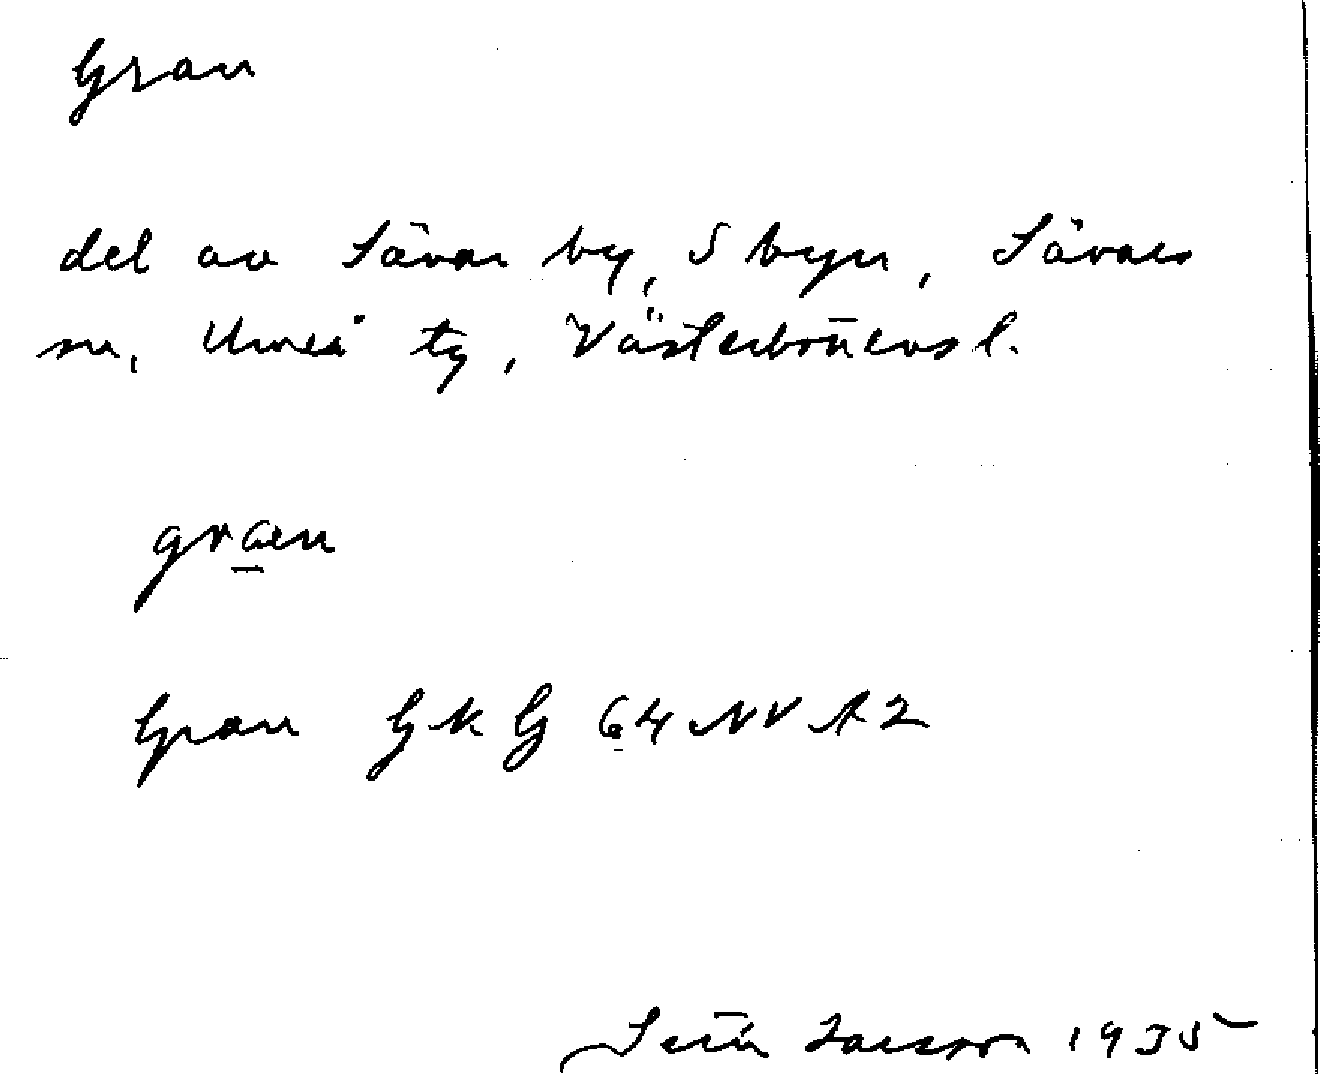 Gran
del av Sävar by, S byn, Sävars
sn, Umeå tg, Västerbottens l.
graen
Gran GKG 64 NV A2
Larsson 1935